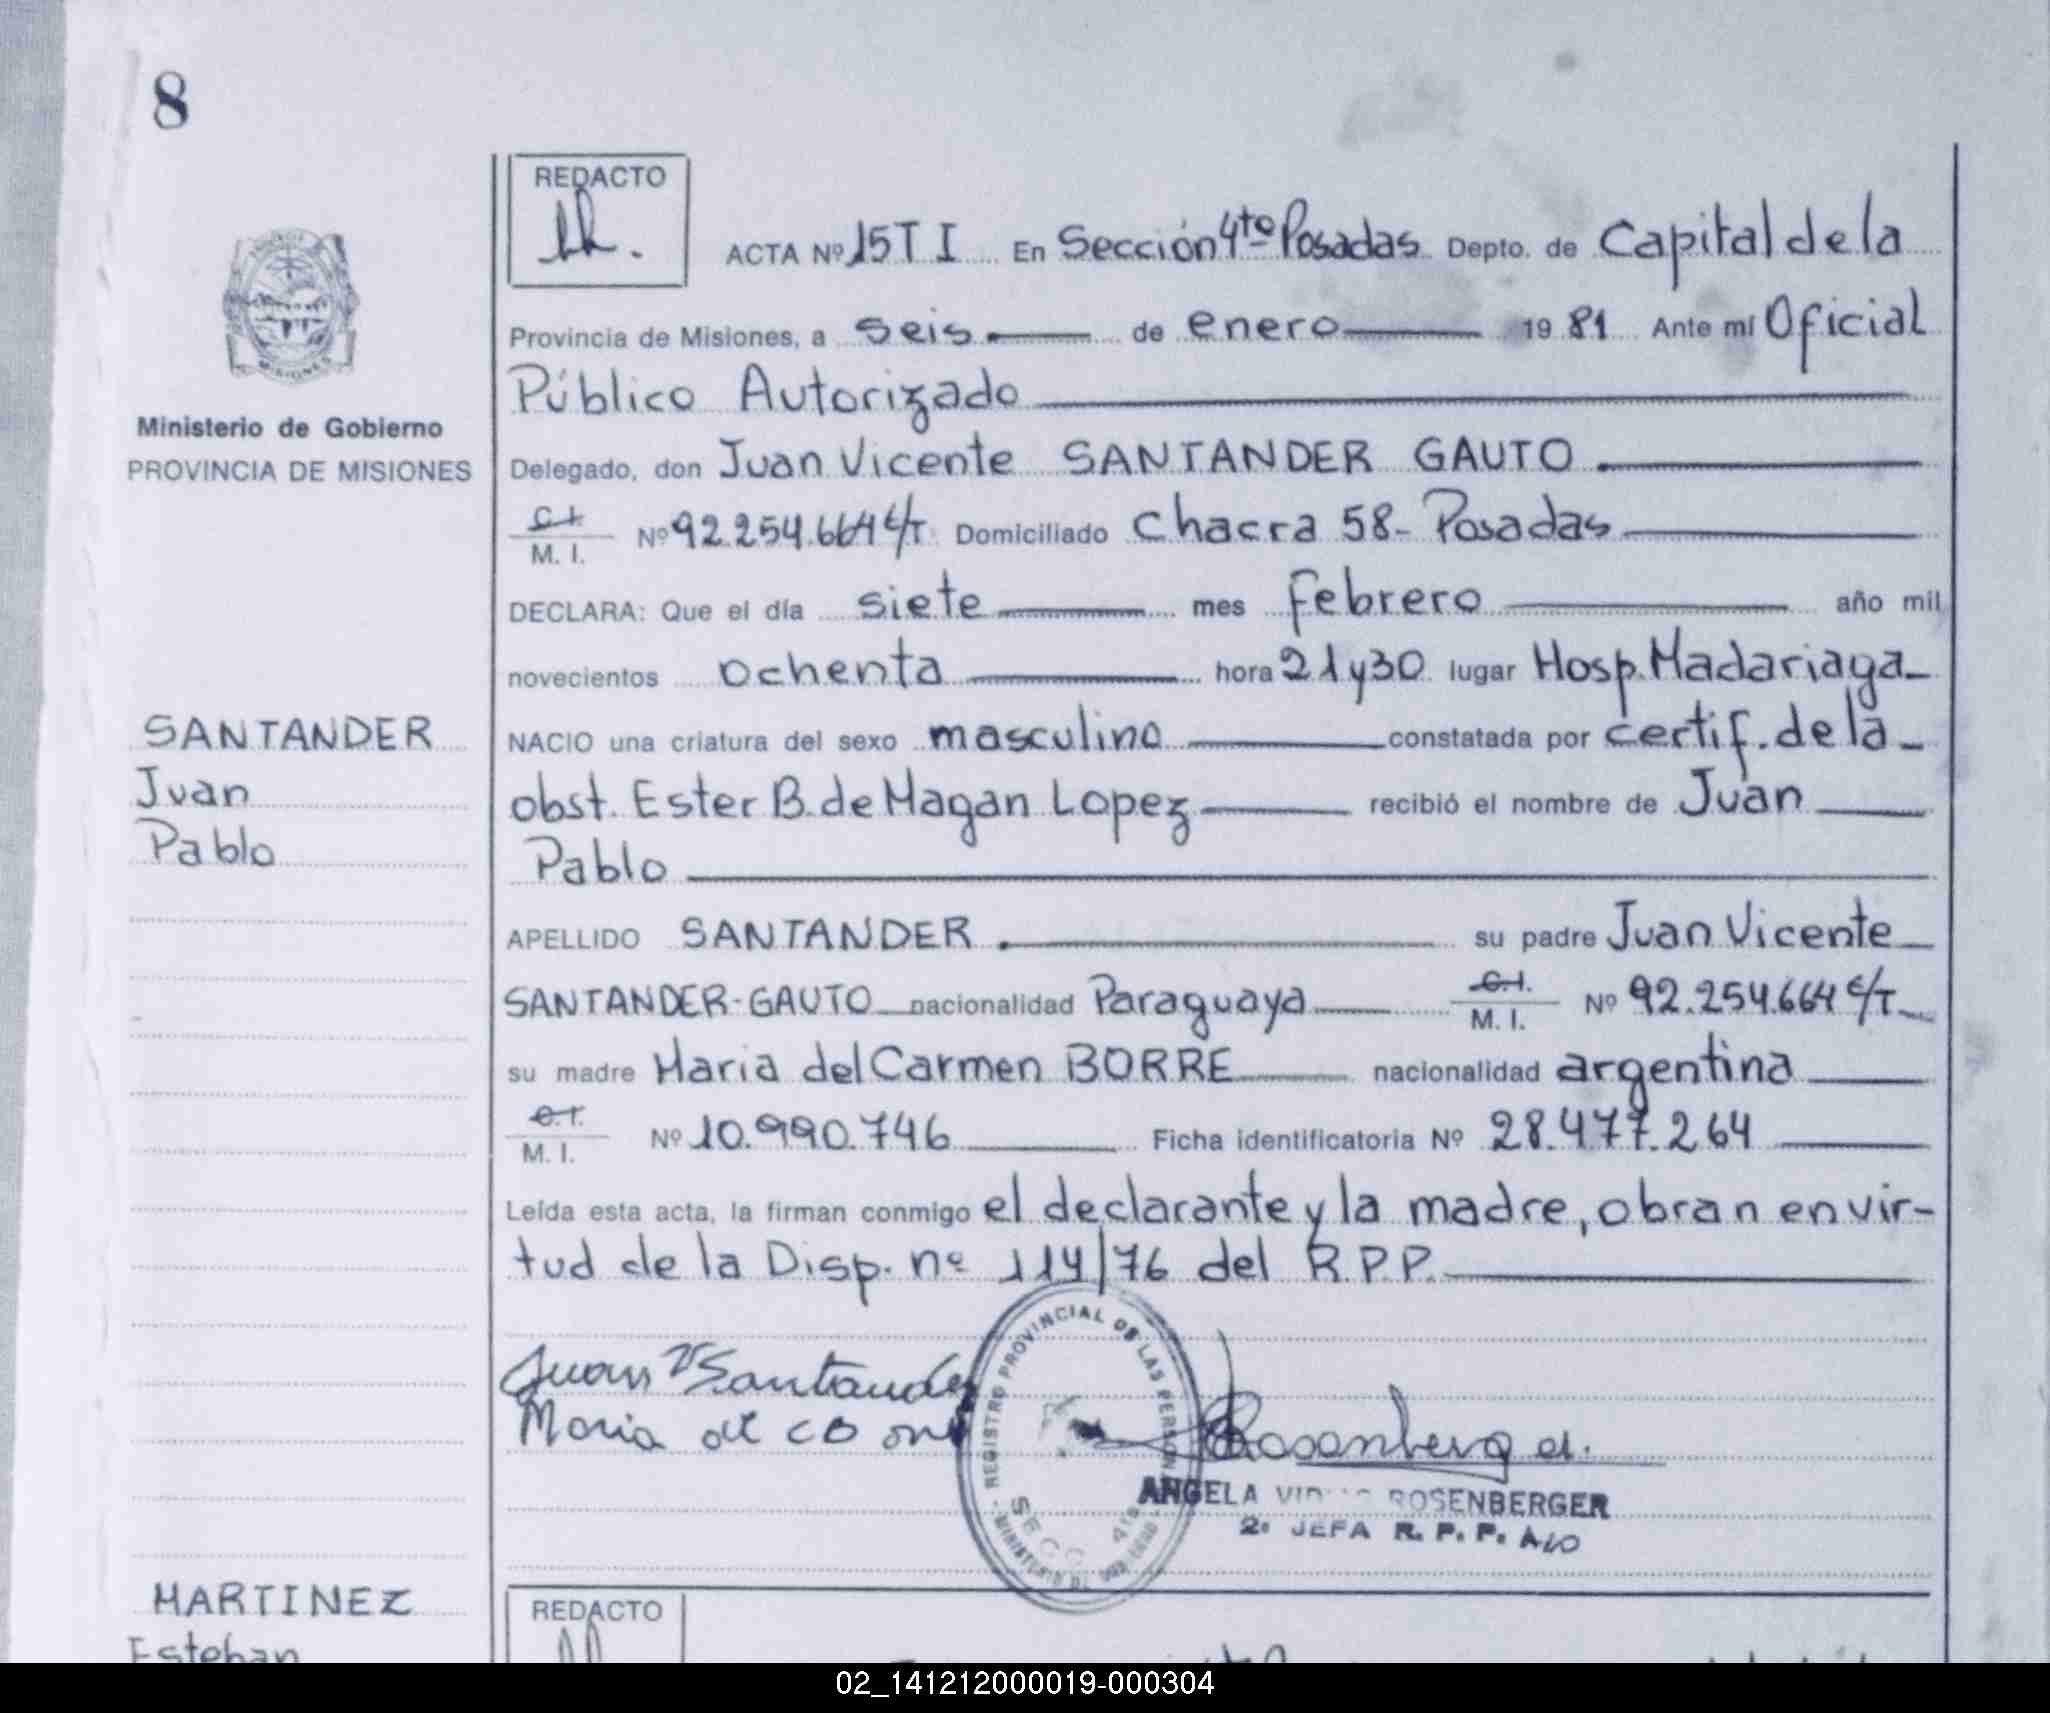 8
REDACTO
ACTA Nº 15 T I En Sección 4to Posadas Depto. de Capital de la
Provincia de Misiones, a seis de enero 1981 Ante mí Oficial
Público Autorizado
Ministerio de Gobierno
PROVINCIA DE MISIONES
Delegado, don Juan Vicente SANTANDER GAUTO
C.I. M. I. Nº 92.254.664 C/T Domiciliado Chacra 58- Posadas
DECLARA: Que el día siete mes febrero año mil
novecientos ochenta hora 21 y 30 lugar Hosp. Madariaga-
SANTANDER
Juan
Pablo
NACIO una criatura del sexo masculino constatada por certif. de la-
obst. Ester B. de Magan Lopez recibió el nombre de Juan
Pablo
APELLIDO SANTANDER su padre Juan Vicente
SANTANDER-GAUTO nacionalidad Paraguaya C.I. M. I. Nº 92.254.664 C/T
su madre Maria del Carmen BORRE nacionalidad argentina
C.I. M. I. Nº 10.990.746 Ficha identificatoria Nº 28.477.264
Leída esta acta, la firman conmigo el declarante y la madre, obran en vir-
tud de la Disp. nº 114/76 del R.P.P.
Juan V Santander
Maria del C B
REGISTRO PROVINCIAL DE LAS PERSON
SECC 4ta
MINISTERIO DE
Rosenberg
ANGELA ROSENBERGER
2º JEFA R. P. P. A/O
MARTINEZ
Esteban
REDACTO
02_141212000019-000304